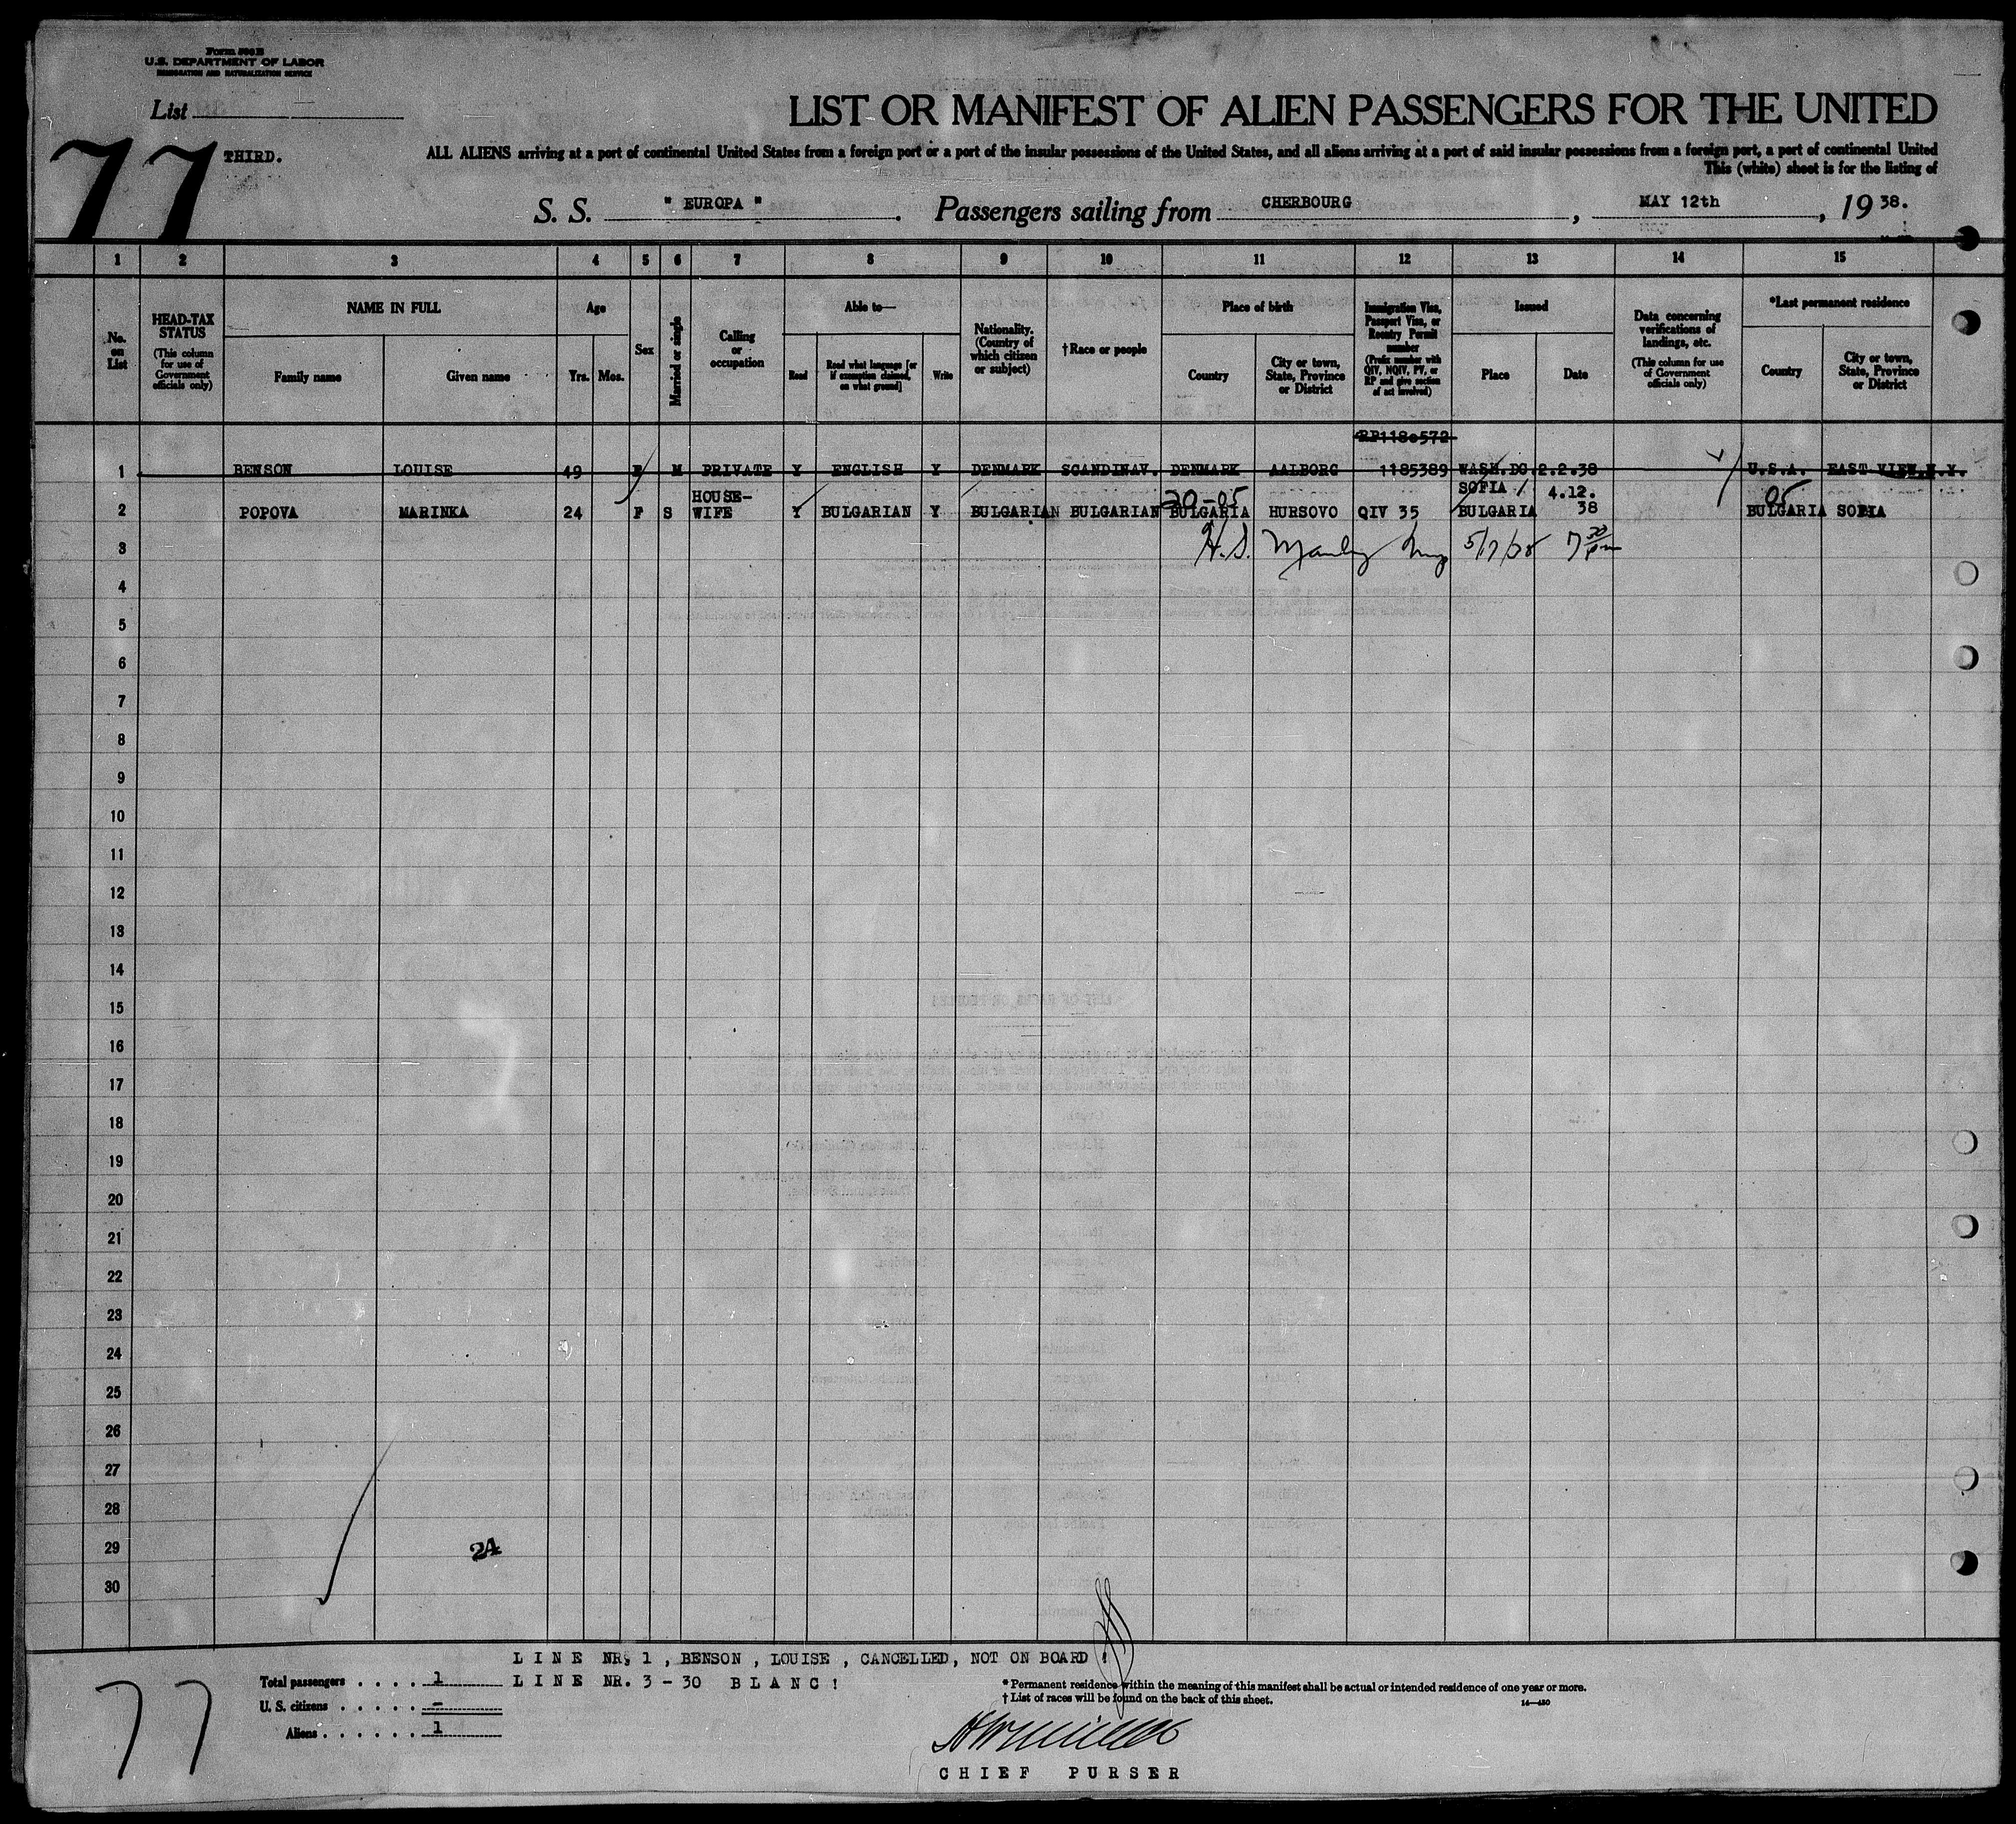 Form 500 B
U.S. DEPARTMENT OF LABOR
IMMIGRATION AND NATURALIZATION SERVICE
List
77
THIRD.
LIST OR MANIFEST OF ALIEN PASSENGERS FOR THE UNITED
ALL ALIENS arriving at a port of continental United States from a foreign port or a port of the insular possessions of the United States, and all aliens arriving at a port of said insular possessions from a foreign port, a port of continental United
This (white) sheet is for the listing of
S. S. " EUROPA ". Passengers sailing from CHERBOURG, MAY 12th, 19 38.
1 2 3 4 5 6 7 8 9 10 11 12 13 14 15
No. on List
HEAD-TAX STATUS
(This column for use of Government officials only)
NAME IN FULL
Family name
Given name
Age
Yrs. Mos.
Sex
Married or single
Calling or occupation
Able to—
Read
Read what language [or if exemption claimed, on what ground]
Write
Nationality. (Country of which citizen or subject)
†Race or people
Place of birth
Country
City or town, State, Province or District
Immigration Visa, Passport Visa, or Reentry Permit number
(Prefix number with QIV, NQIV, PV, or RP and give section of act involved)
Issued
Place
Date
Data concerning verifications of landings, etc.
(This column for use of Government officials only)
*Last permanent residence
Country
City or town, State, Province or District
RP1180572
1 BENSON LOUISE 49 F M PRIVATE Y ENGLISH Y DENMARK SCANDINAV. DENMARK AALBORG 1185389 WASH.DC. 2.2.38 U.S.A. EAST VIEW.N.Y.
HOUSE- 20-05 SOFIA / 4.12. 05
2 POPOVA MARINKA 24 F S WIFE Y BULGARIAN Y BULGARIAN BULGARIAN BULGARIA HURSOVO QIV 35 BULGARIA 38 BULGARIA SOFIA
3 H.S. 5/17/38 7 30 pm
4
5
6
7
8
9
10
11
12
13
14
15
16
17
18
19
20
21
22
23
24
25
26
27
28
29 24
30
LINE NR. 1 , BENSON , LOUISE , CANCELLED, NOT ON BOARD !
Total passengers . . . . 1 LINE NR. 3 - 30 BLANC !
U. S. citizens . . . . . —
Aliens . . . . . . 1
* Permanent residence within the meaning of this manifest shall be actual or intended residence of one year or more.
† List of races will be found on the back of this sheet. 14—430
77
CHIEF PURSER